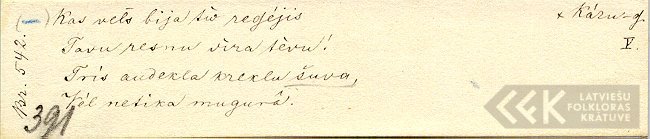 Kas vels bija tiv regéjis
Tavu resnu vira têvu!
Tris audekla krekla šuva,
Vél netika mugurâ.
× Kázu-g.
V.
Br. 542. (–)
391
LATVIEŠU
FOLKLORAS
KRĀTUVE